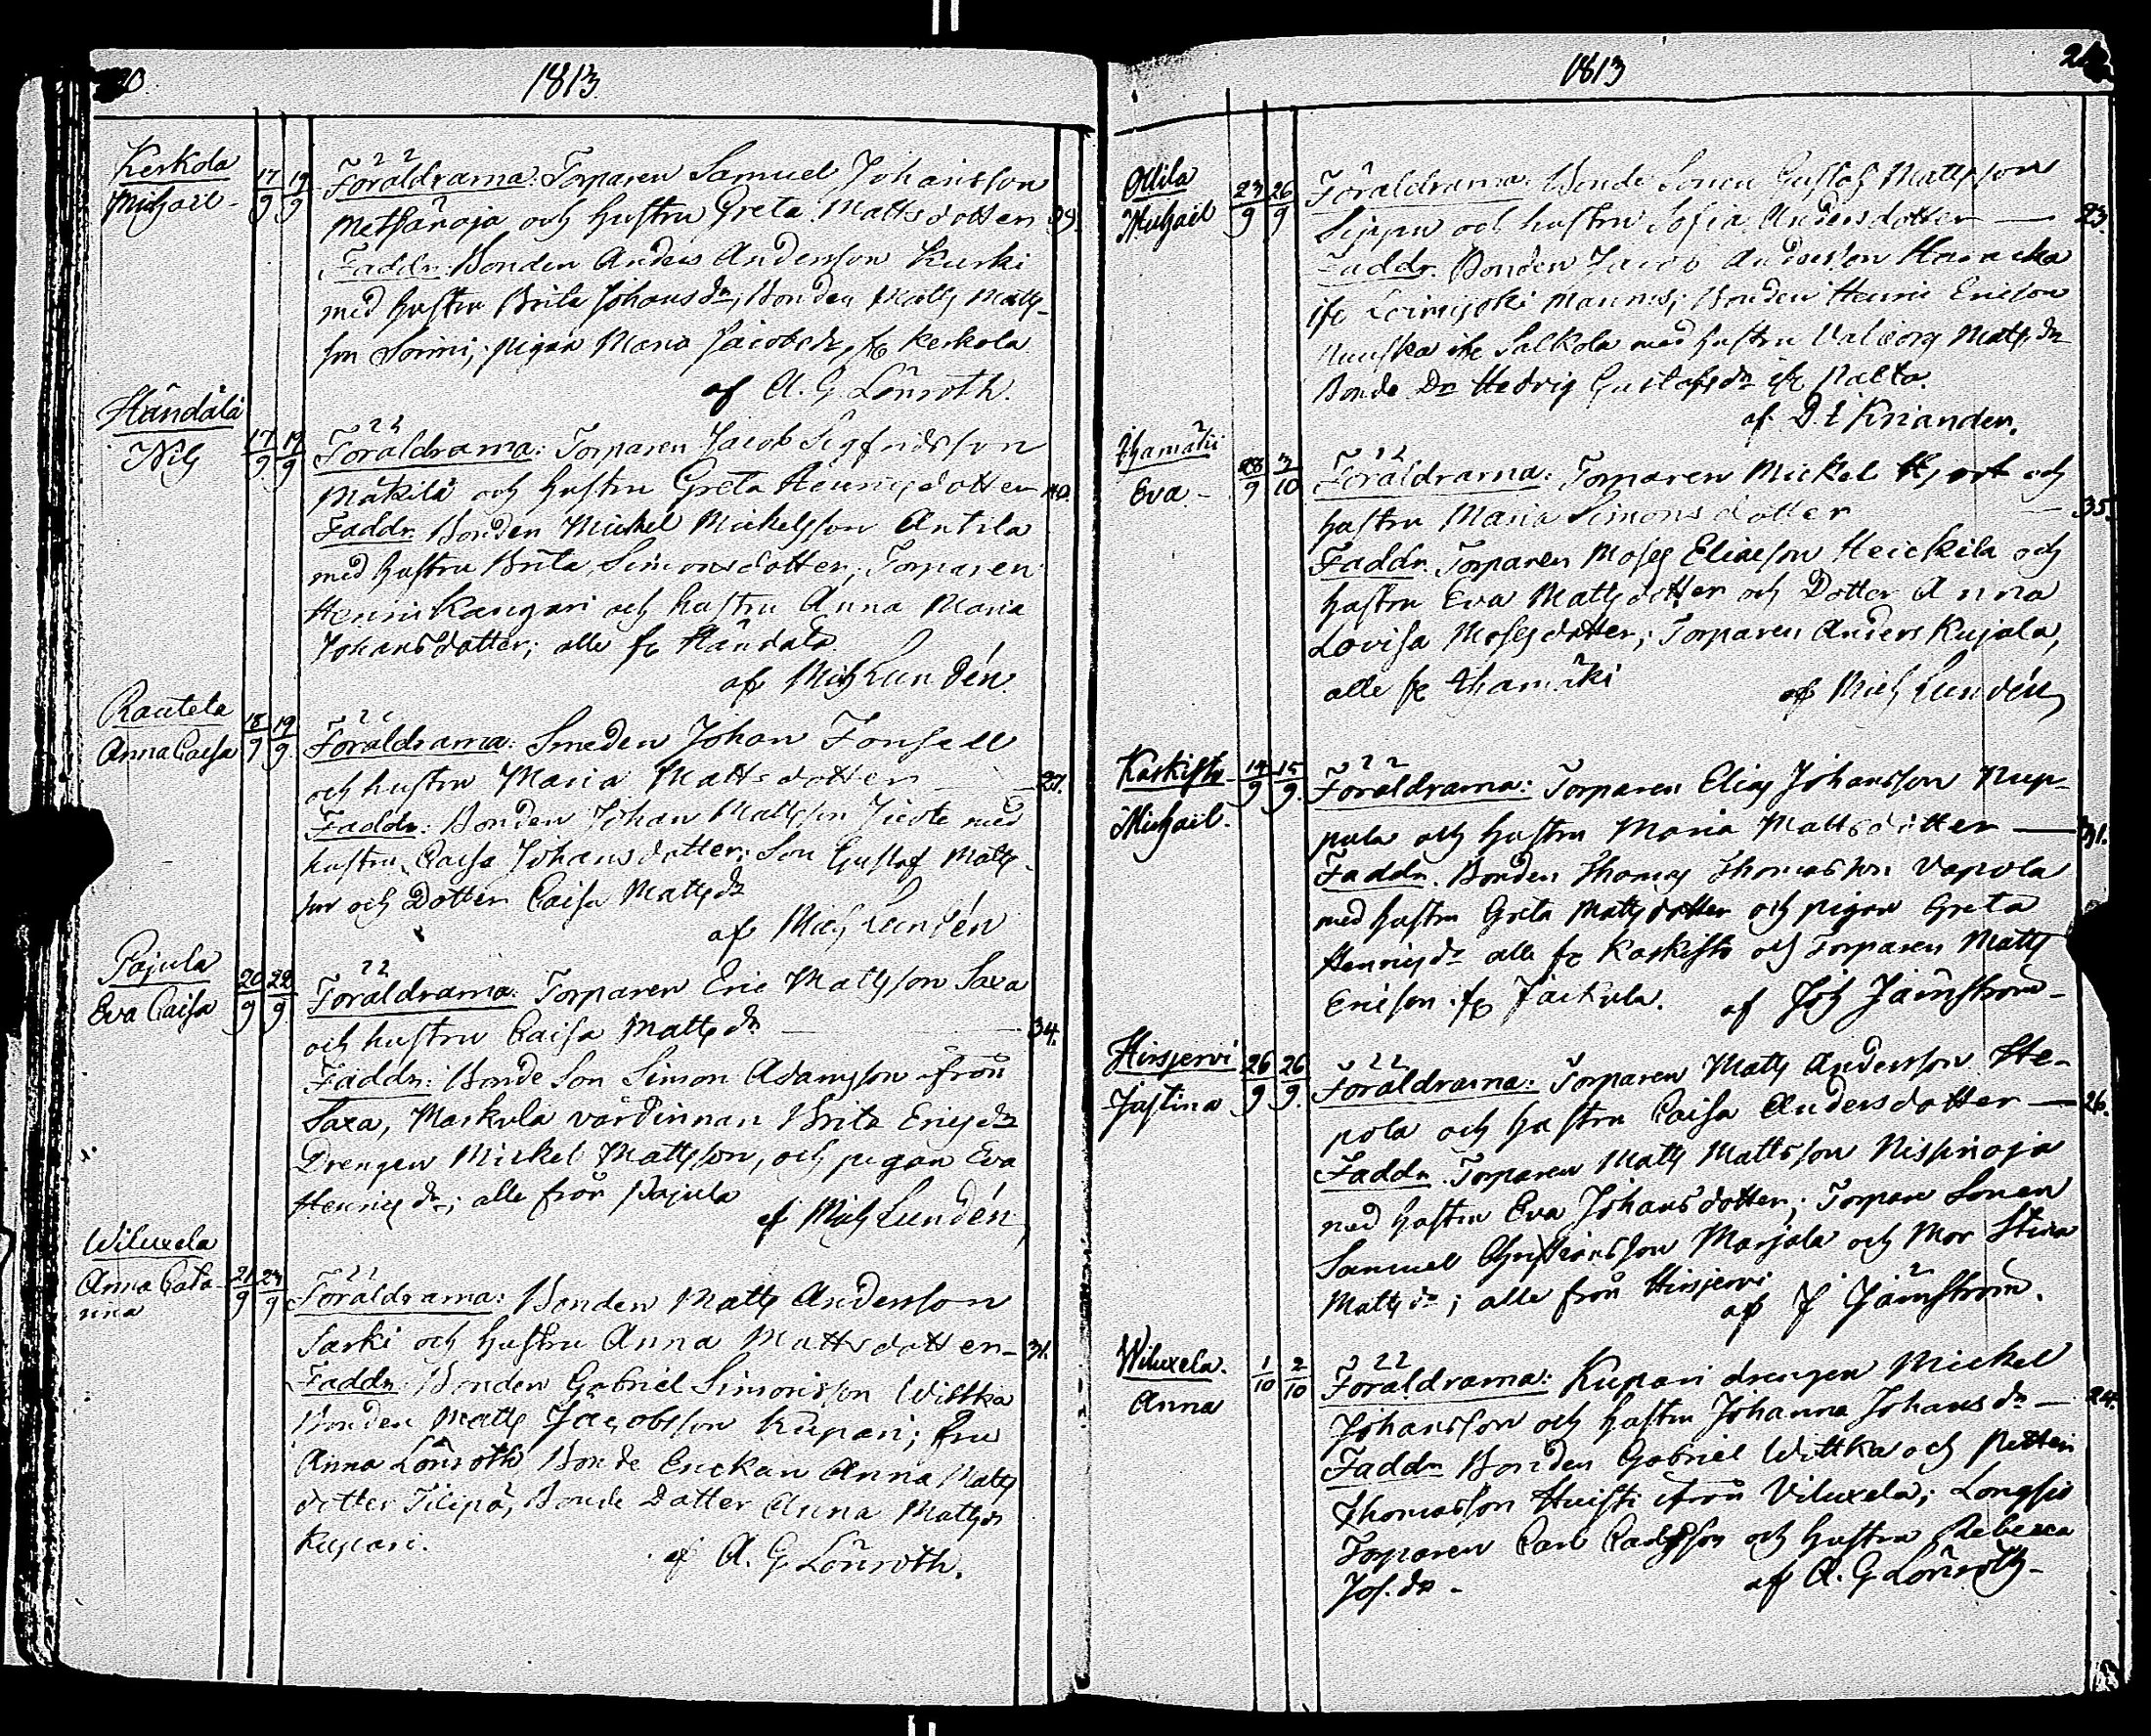 1813
Kerkola
Michael
17/9 19/9
Föräldrarna: Torparen Samuel Johansson
Metsänoja och hustru Greta Mattsdotter 39.
Faddr: Bonden Anders Andersson Kurki
med hustru Brita Johansdr, Bonden Matts Matts-
son Sorini; pigan Maria Jacobsdr fr Kerkola
af A. G. Lönroth.
Händälä
Nils
17/9 19/9
Föräldrarna: Torparen Jacob Sigfridsson
Mäkilä och hustru Greta Henricsdotter 40.
Faddr. Bonden Mickel Mickelsson Antila
med hustru Brita Simonsdotter, Torparen
Henric Kangari och hustru Anna Maria
Johansdotter; alle fr Händälä.
af Mich Lundén.
Rautela
Anna Caisa
18/9 19/9
Föräldrarna: Smeden Johan Forsell
och hustru Maria Mattsdotter 27.
Faddr: Bonden Johan Mattsson med
hustru Caisa Johansdotter; Son Gustaf Matts-
son och Dotter Caisa Mattsdr
af Mich Lundén
Pajula
Eva Caisa
20/9 22/9
Föräldrarna: Torparen Eric Mattsson Saxa
och hustru Caisa Mattsdr — 34.
Faddr: Bonde Son Simon Adamsson ifrån
Saxa, Markula värdinnan Brita Ericsdr
Drengen Mickel Mattsson, och pigan Eva
Henricsdr; alle från Pajula
af Mich Lundén
Wiluxela
Anna Cata-
rina
21/9 23/9
Föräldrarna: Bonden Matts Andersson
Sarki och hustru Anna Mattsdotter — 31.
Faddr: Bonden Gabriel Simonsson Wittka
Bonden Matts Jacobsson Kupari; fru
Anna Lönroth, Bonde Enckan Anna Matts
dotter Filipä, Bonde Dotter Anna Mattsdr
Kupari.
af A. G. Lönroth.
1813
Ollila
Michael
23/9 26/9
Föräldrarna: Bonde Sonen Gustaf Mattsson
Seppu och hustru Sofia Andersdotter — 23.
Faddr. Bonden Jacob Andersson Haracka
ifr Loimijoki Mannis; Bonden Henric Ericson
Nuuska ifr Salkola med hustru Valborg Mattsdr
Bonde Dr Hedvig Gustafsdr ifr Palta.
af D. E Krianden.
Thamäki
Eva
28/9 3/10
Föräldrarna: Torparen Mickel Hjort och
hustru Maria Simonsdotter — 35.
Faddr. Torparen Moses Eliaeson Heickila och
hustru Eva Mattsdotter och Dotter Anna
Lovisa Mosesdotter; Torparen Anders Kujala,
alle fr Thamäki
af Mich Lundén
Kaskisto
Michael.
14/9 15/9
Föräldrarna: Torparen Elias Johansson Nup-
pula och hustru Maria Mattsdotter — 31.
Faddr. Bonden Thomas Thomasson Vapola
med hustru Greta Mattsdotter och pigan Greta
Henricsdr alle fr Kaskisto och Torparen Matts
Ericson fr Jäckula.
af Joh Järnström
Hirsjervi
Justina
26/9 26/9
Föräldrarna: Torparen Matts Andersson He-
pola och hustru Caisa Andersdotter — 26.
Faddr. Torparen Matts Mattsson Nissinoja
med hustru Eva Johansdotter; Torpare Sonen
Samuel Christiansson Marjala och Mor Stina
Mattsdr; alle från Hirsjervi
af J Järnström.
Wiluxela.
Anna
1/10 2/10
Föräldrarna: Kupari drengen Mickel
Johansson och hustru Johanna Johansdr — 24.
Faddr Bonden Gabriel Wittka och Petter
Thomasson Huisti ifrån Viluxela; Longsio
Torparen Carl Carlsson och hustru Rebecca
Jos.dr
af A. G. Lönroth